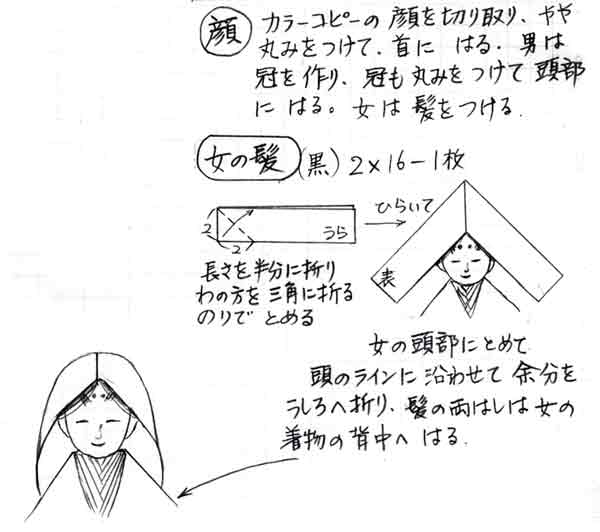 顔 カラーコピーの顔を切り取り、やや
丸みをつけて、首に はる。男は
冠を作り、冠も丸みをつけて頭部
に はる。女は髪をつける。
女の髪 (黒) 2×16-1枚
2
2
うら
ひらいて
表
長さを半分に折り
わの方を三角に折る
のりで とめる
女の頭部にとめて
頭のラインに沿わせて余分を
うしろへ折り、髪の両はしは女の
着物の背中へ はる。